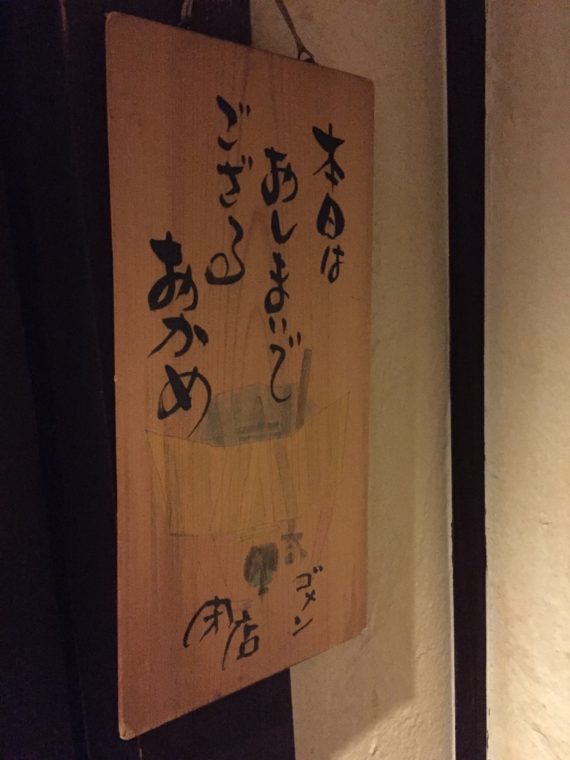 本日は
おしまいで
ござる
あかめ
ゴメン
閉店